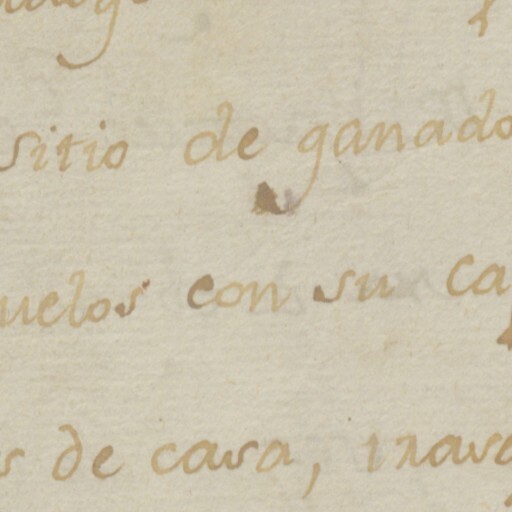 sitio de ganado
uelos con su ca
s de casa,